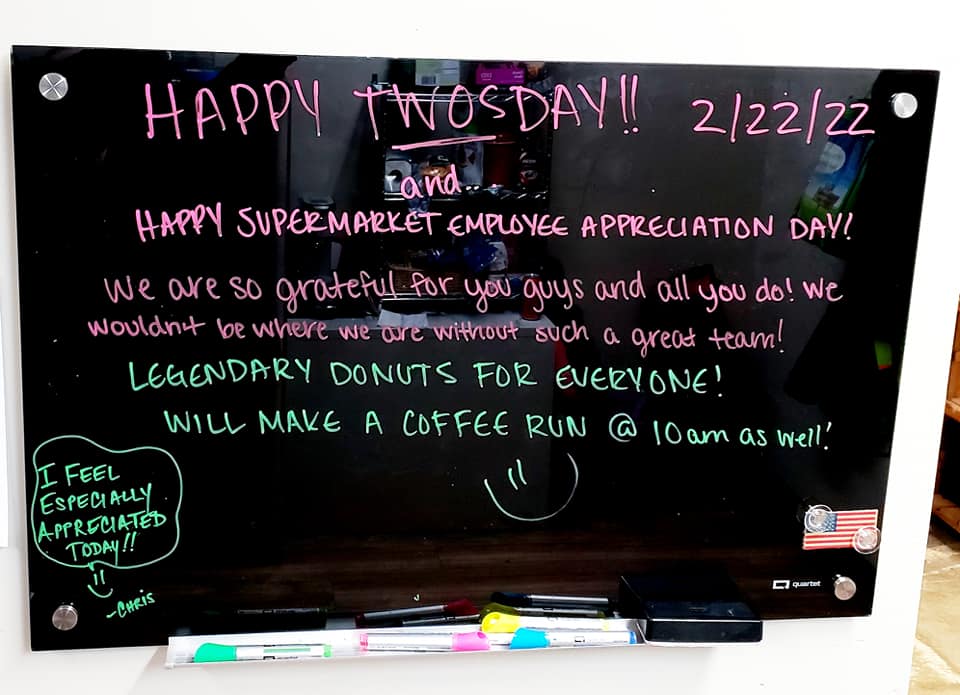 HAPPY TWOSDAY!! 2/22/22
and..
HAPPY SUPERMARKET EMPLOYEE APPRECIATION DAY!
We are so grateful for you guys and all you do! We
wouldn't be where we are without such a great team!
LEGENDARY DONUTS FOR EVERYONE!
WILL MAKE A COFFEE RUN @ 10am as well!
I FEEL
ESPECIALLY
APPRECIATED
TODAY!!
-CHRIS
quartet